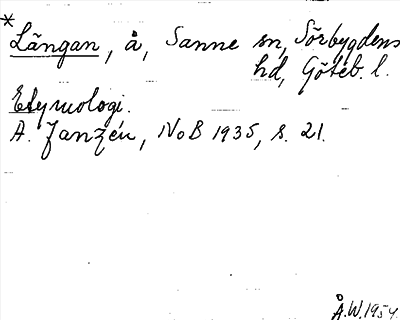 * Långan, å, Sanne sn, Sörbygdens
hd, Göteb. l.
Etymologi.
A. Janzén, NoB 1935, s. 21.
Å.W. 1954.